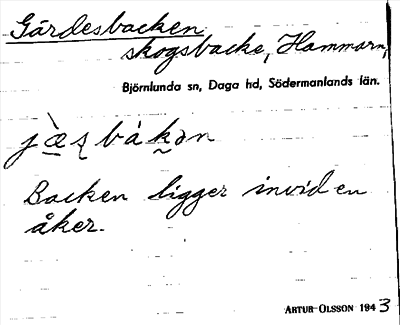 Gärdesbacken
skogsbacke, Hammarn,
Björnlunda sn, Daga hd, Södermanlands län.
jæ̀ʂbákən
Backen ligger invid en
åker.
ARTUR OLSSON 1943